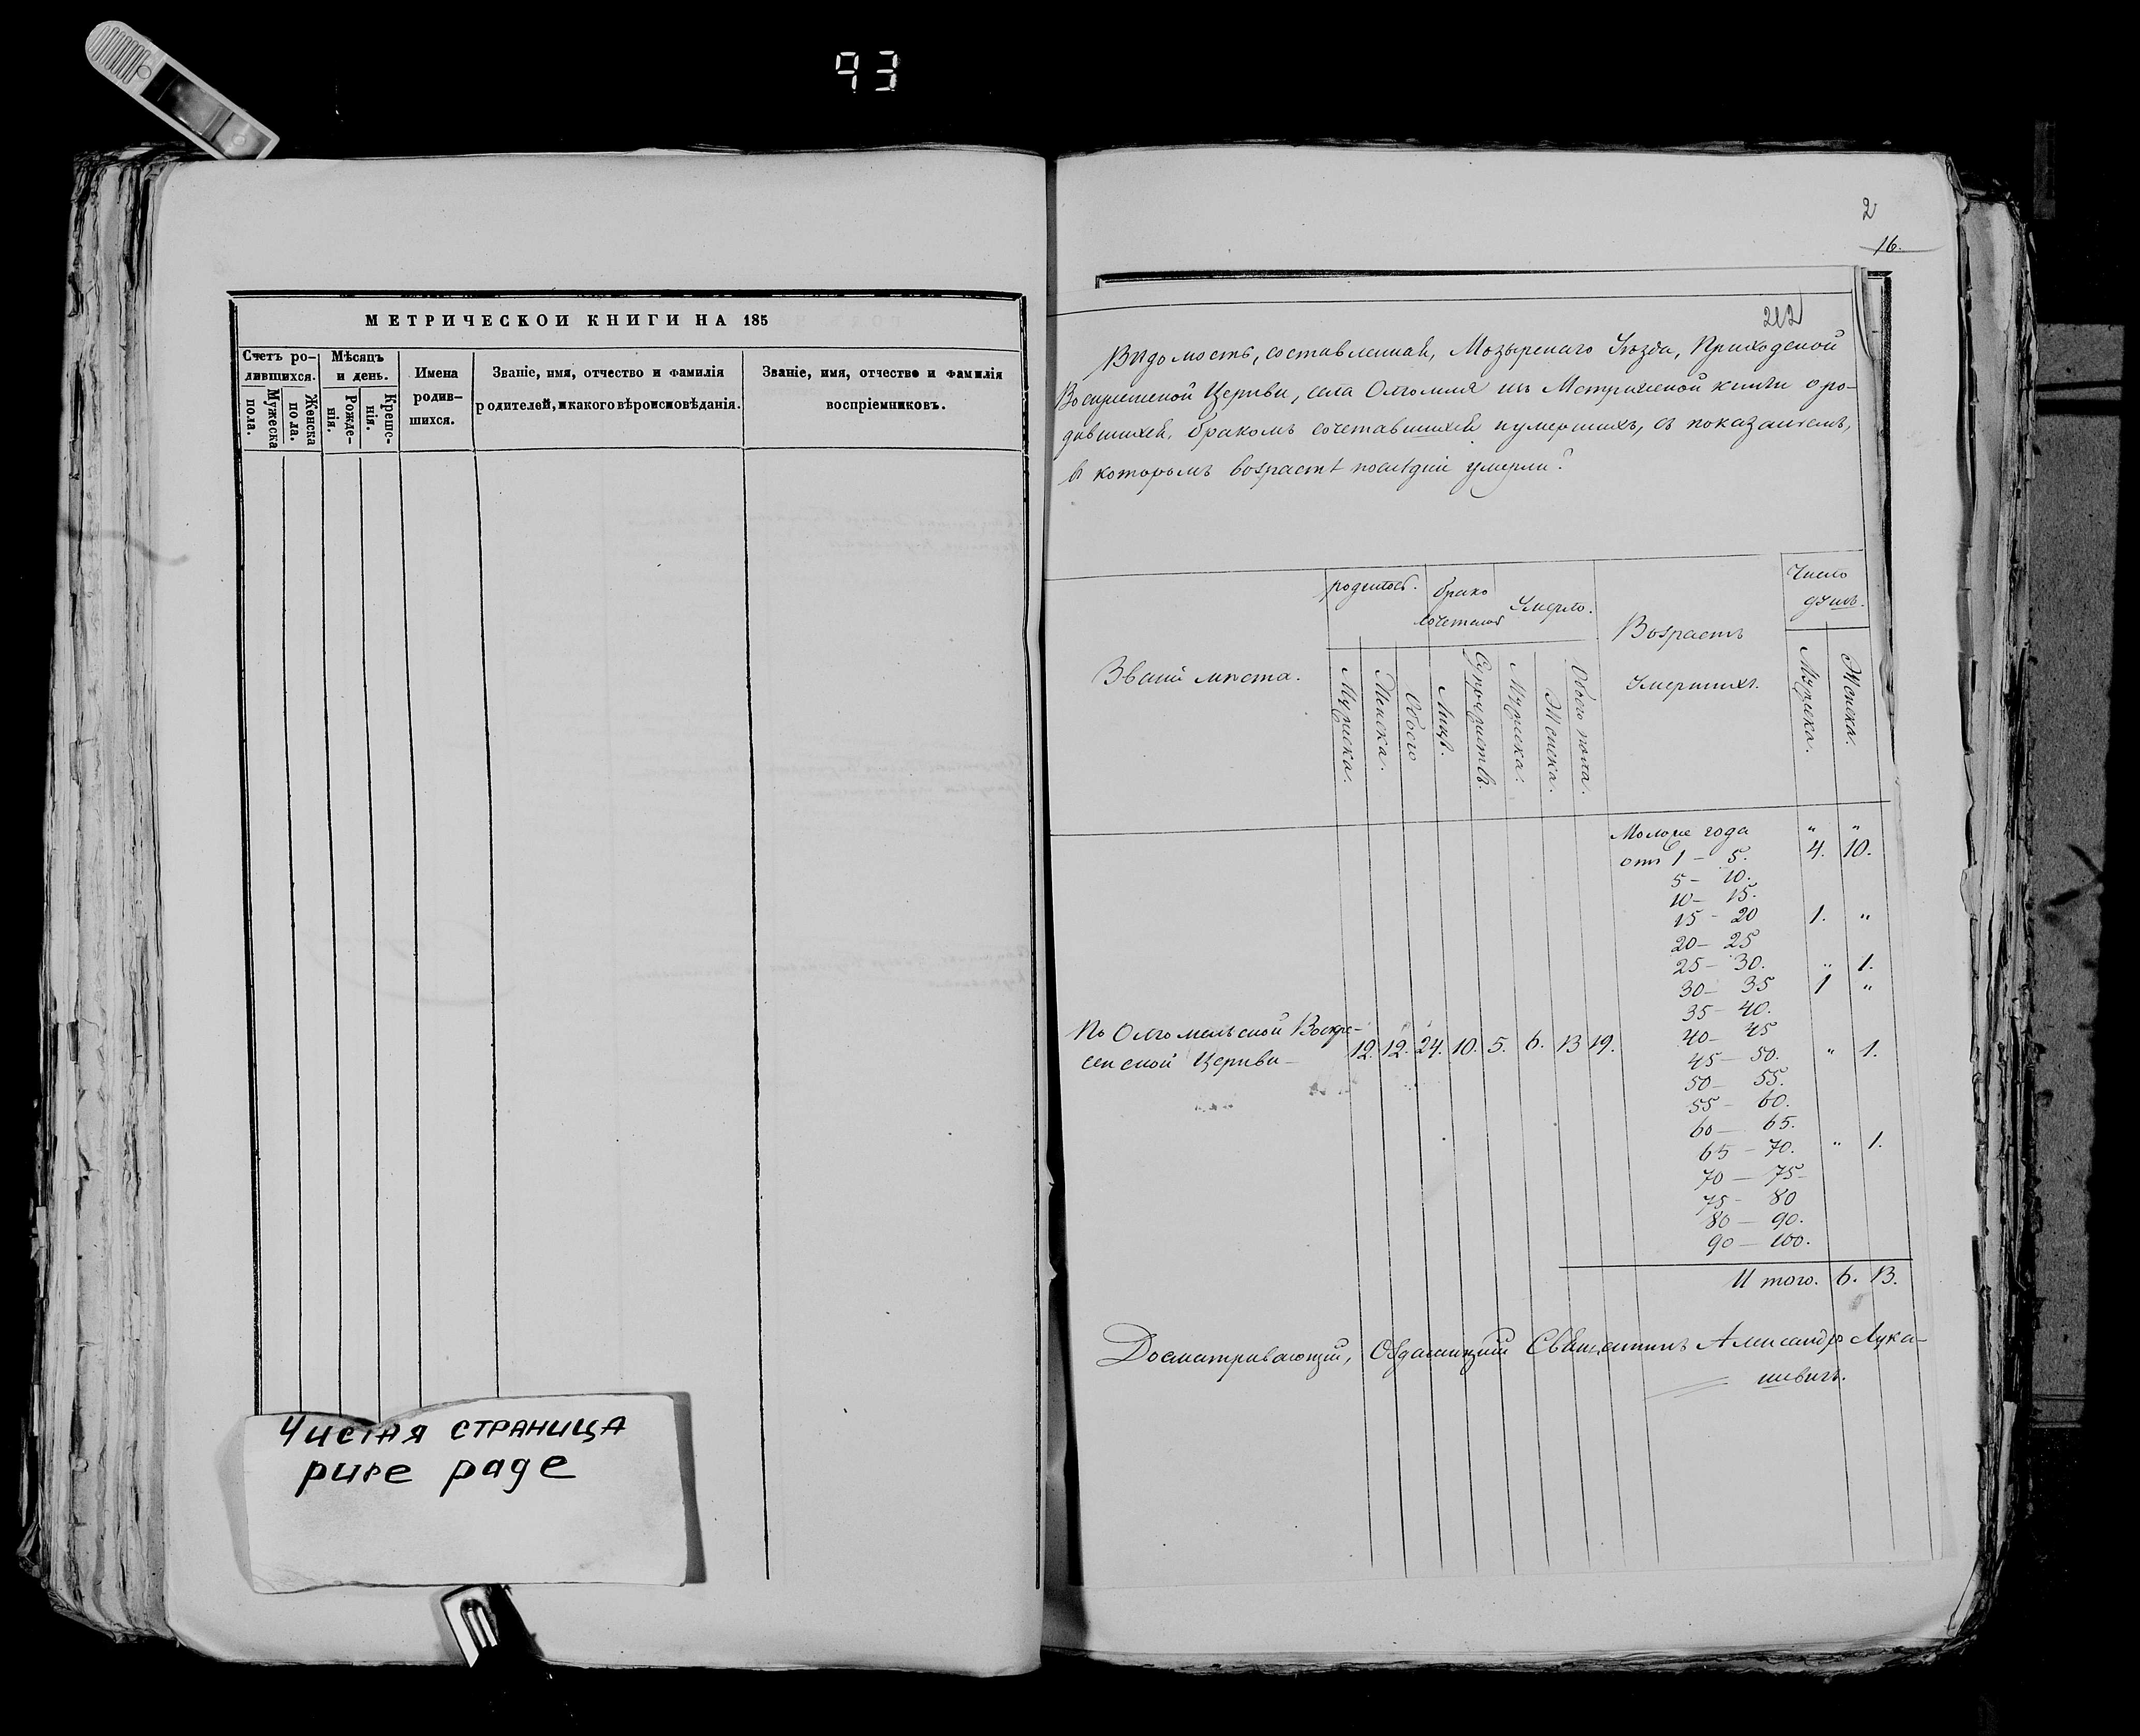 93
МЕТРИЧЕСКОИ КНИГИ НА 185
Счетъ ро-
дившихся.
Мужеска
пола.
Женска
пола.
Мѣсяцъ
и день.
Рожде-
нія.
Креще-
нія.
Имена
родив-
шихся.
Званіе, имя, отчество и фамилія
родителей, и какого вѣроисповѣданія.
Званіе, имя, отчество и фамилія
воспріемниковъ.
Чистая страница
pure page
2
16.
212
Вѣдомость, составленная, Мозырскаго Уѣзда, Приходской
Воскресенской Церкви, села Олгомля изъ Метрической книги о ро-
дившихся, бракомъ сочетавшихся и умершихъ, съ показаніемъ,
въ которомъ возрастѣ послѣдніе умерли?
Званіе мѣста.
родилось.
Мужеска.
Женска.
Обоего
брако
сочеталось
Лицъ.
Супружествъ.
Умерло.
Мужеска.
Женска.
Обоего пола.
Возрастъ
Умершихъ.
Число
душъ.
Мужеска.
Женска.
Моложе года " "
отъ 1 – 5. 4. 10.
5 – 10.
10 – 15.
15 – 20 1. "
20 – 25
25 – 30. " 1.
30 – 35 1 "
35 – 40.
40 – 45
45 – 50. " 1.
50 – 55.
55 – 60.
60 – 65.
65 – 70. " 1.
70 – 75
75 – 80
80 – 90.
90 – 100.
По Олгомельской Воскре-
сенской Церкви – 12. 12. 24. 10. 5. 6. 13 19.
Итого. 6. 13.
Досматривающій, Священникъ Александръ Лука-
шевичъ.